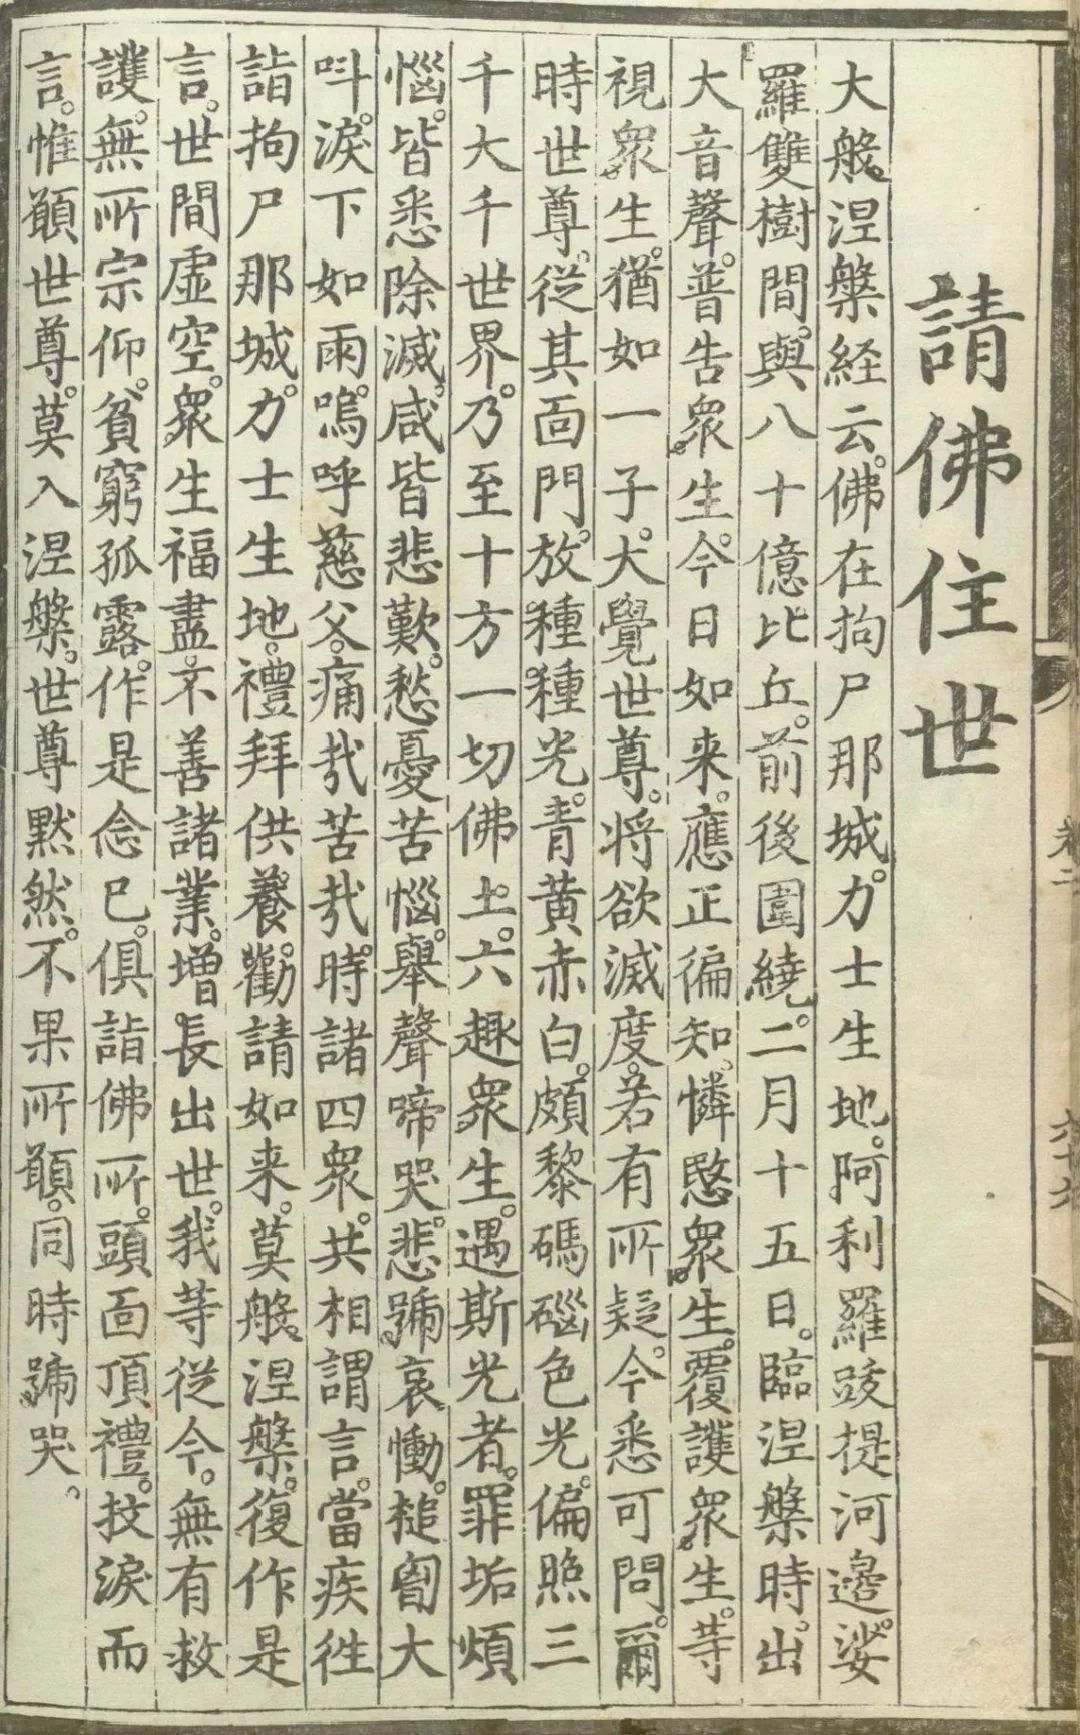 請佛住世
大般涅槃経云。佛在拘尸那城。力士生地。阿利羅䟦提河邊。娑
羅雙樹間。與八十億比丘。前後圍繞。二月十五日。臨涅槃時。出
大音聲。普告衆生。今日如来。應正徧知。憐愍衆生。覆護衆生。等
視衆生。猶如一子。大覺世尊。将欲滅度。若有所疑。今悉可問。爾
時世尊。從其面門。放種種光。青黄赤白。頗黎碼碯色光。徧照三
千大千世界。乃至十方一切佛土。六趣衆生。遇斯光者。罪垢煩
惱。皆悉除滅。咸皆悲歎。愁憂苦惱。舉聲啼哭。悲號哀慟。搥匈大
呌。淚下如雨。嗚呼慈父。痛哉苦哉。時諸四衆。共相謂言。當疾徃
詣拘尸那城。力士生地。禮拜供養。勸請如来。莫般涅槃。復作是
言。世間虛空。衆生福盡。不善諸業。增長出世。我等從今。無有救
護。無所宗仰。貧窮孤露。作是念已。俱詣佛所。頭面頂禮。抆淚而
言。惟願世尊。莫入涅槃。世尊默然。不果所願。同時號哭。
卷二
六十六